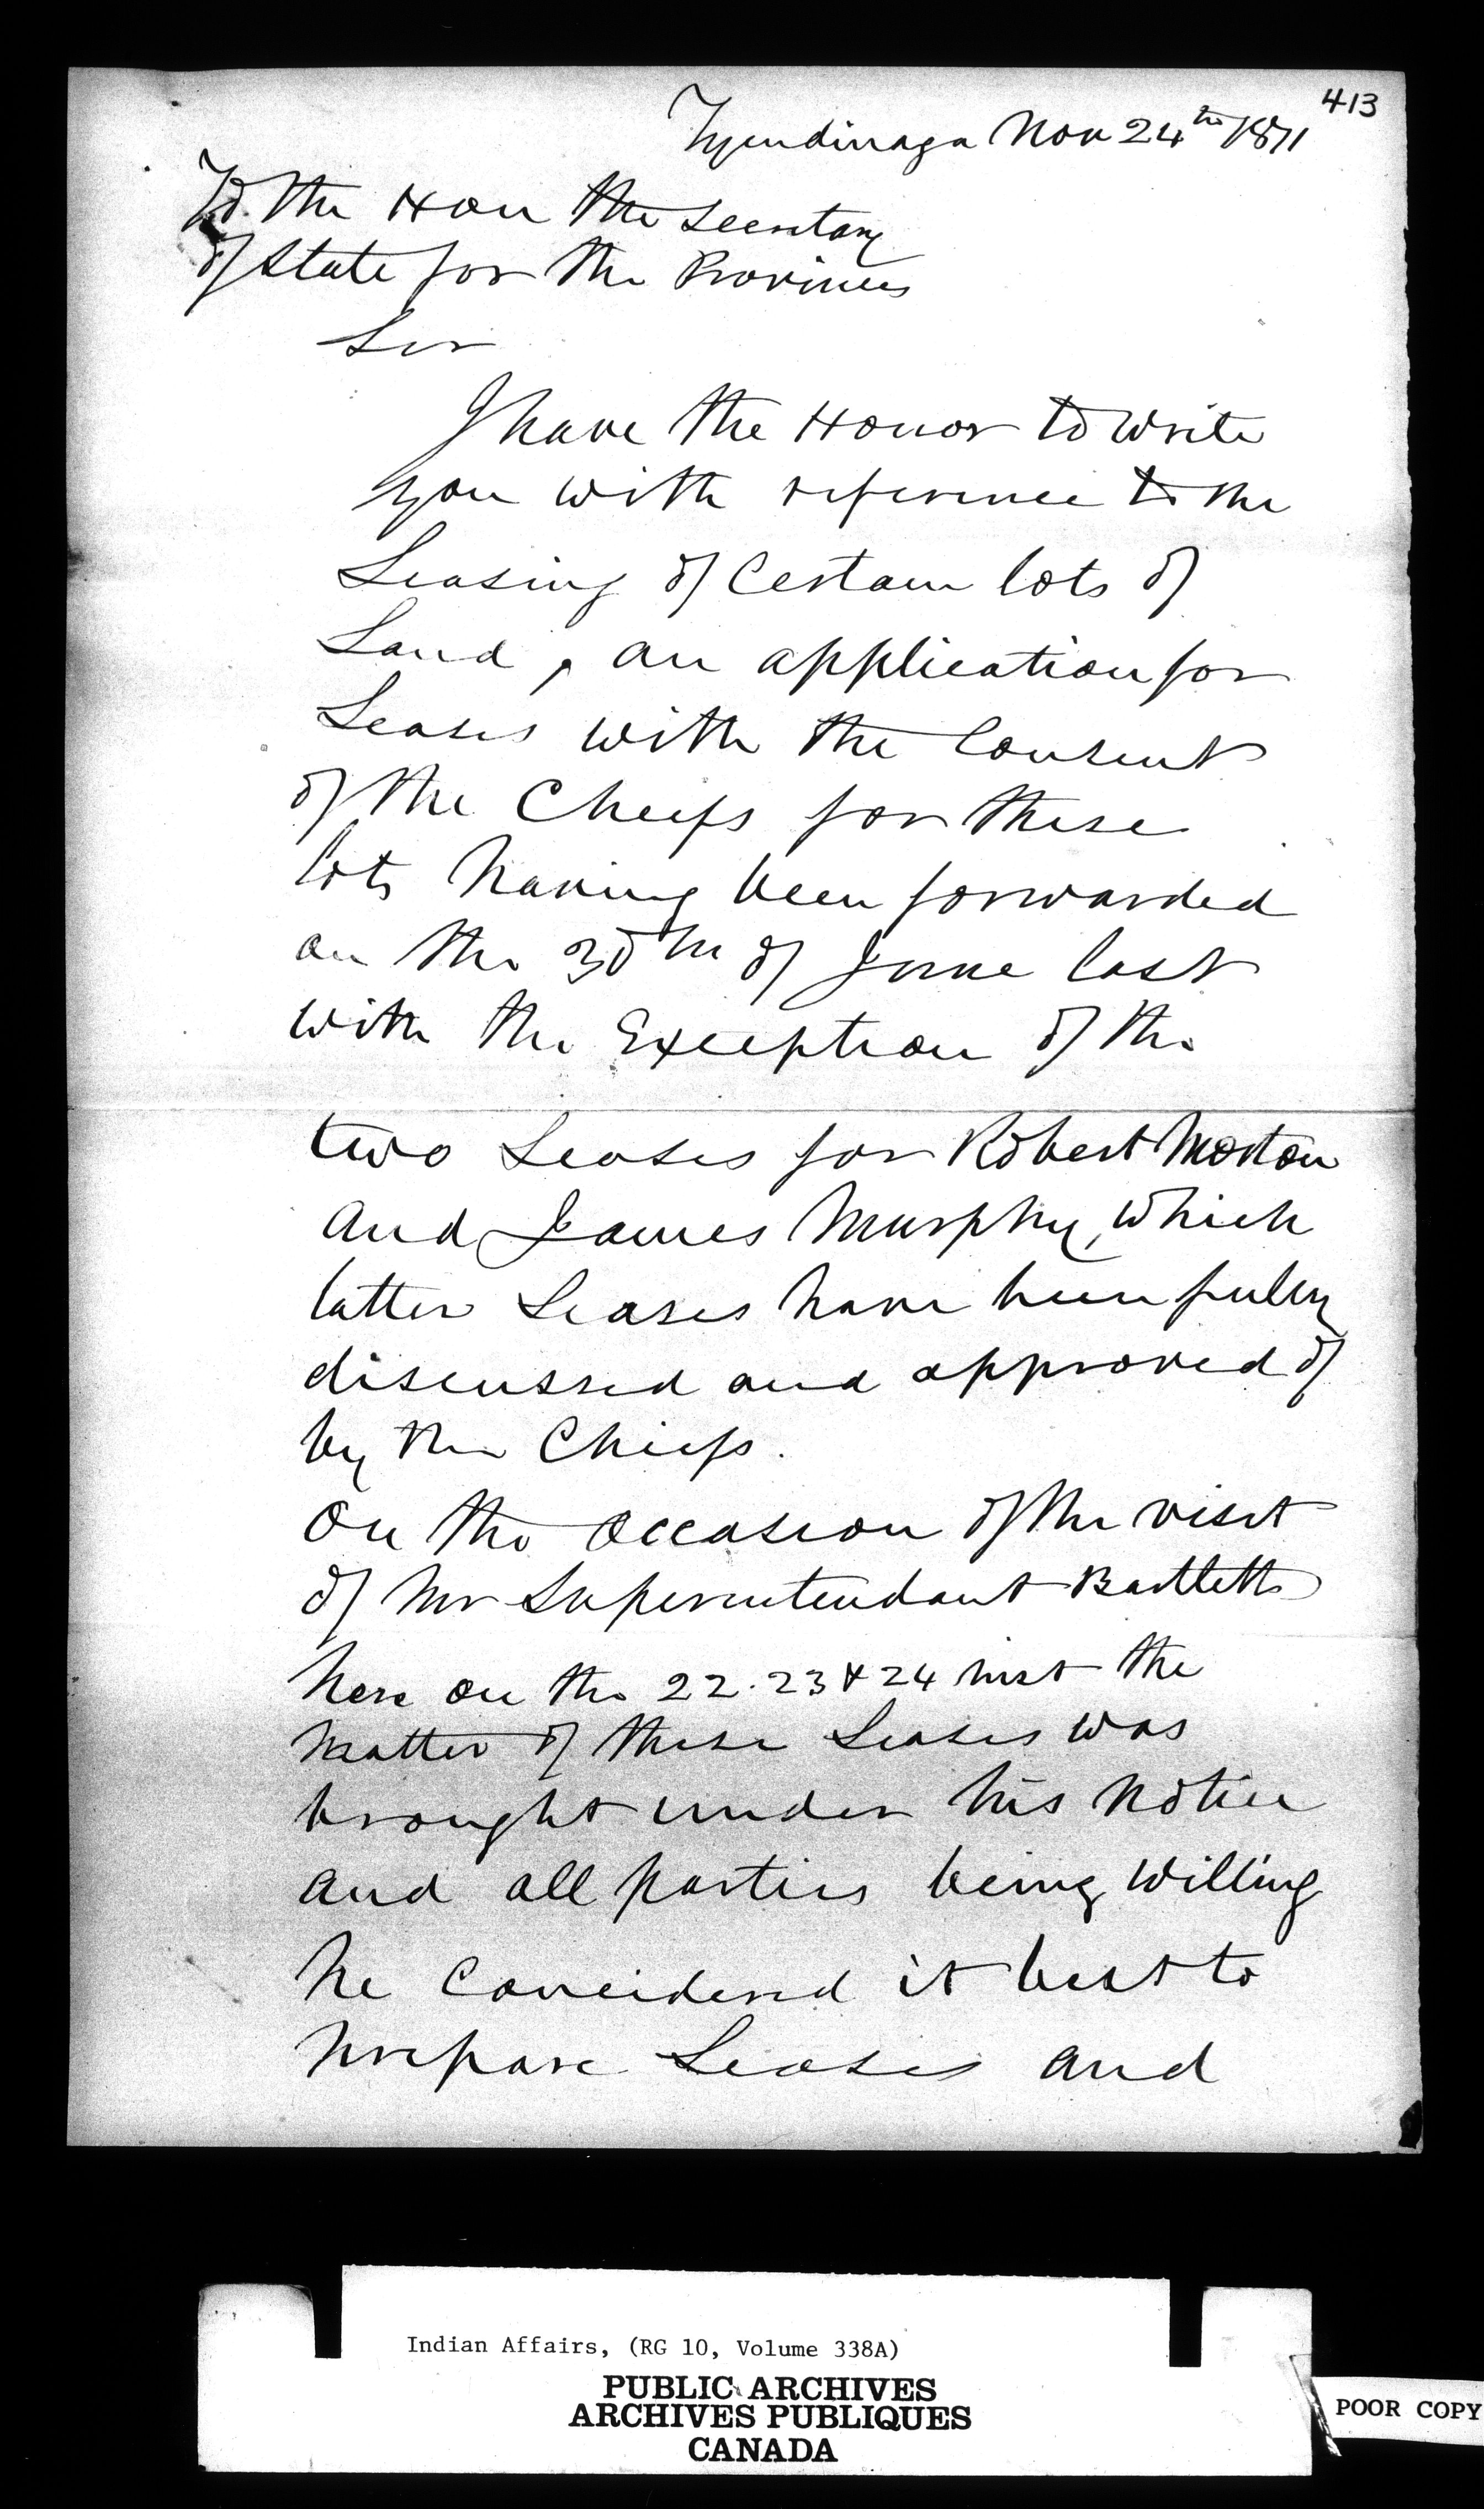 413
Tyendinaga Nov 24th 1871
To the Hon the Secretary
of State for the Provinces
Sir
I have the Honor to write
you with reference to the
Leasing of Certain lots of
Land, an application for
Leases with the Consent
of the Cheifs for these
lots having been forwarded
on the 30th of June last
with the Exception of the
two Leases for Robert Morton
and James Murphy, which
latter Leases have been fully
discussed and approved of
by the Chiefs.
On the Occasion of the visit
of Mr Superintendant Bartlett
here on the 22.23 & 24 inst the
matter of these Leases was
brought under his notice
and all parties being Willing
he Concidered it best to
prepare Leases and
Indian Affairs, (RG 10, Volume 338A)
PUBLIC ARCHIVES
ARCHIVES PUBLIQUES
CANADA
POOR COPY